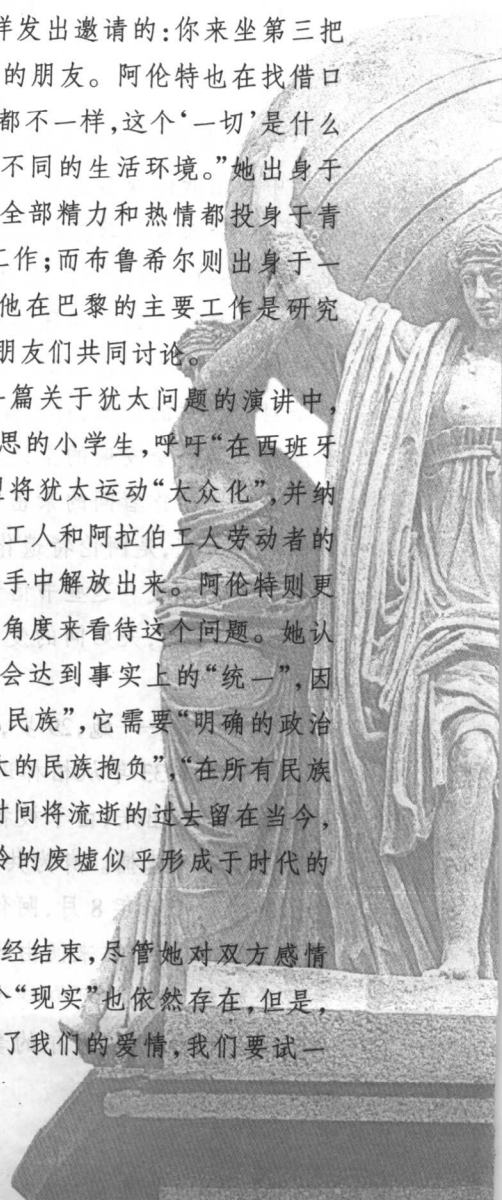 样发出邀请的:你来坐第三把
的朋友。阿伦特也在找借口
都不一样,这个‘一切’是什么
不同的生活环境。”她出身于
全部精力和热情都投身于青
工作;而布鲁希尔则出身于一
他在巴黎的主要工作是研究
朋友们共同讨论。
一篇关于犹太问题的演讲中,
思的小学生,呼吁“在西班牙
将犹太运动“大众化”,并纳
工人和阿拉伯工人劳动者的
手中解放出来。阿伦特则更
角度来看待这个问题。她认
会达到事实上的“统一”,因
民族”,它需要“明确的政治
大的民族抱负”,“在所有民族
时间将流逝的过去留在当今,
冷的废墟似乎形成于时代的
经结束,尽管她对双方感情
个“现实”也依然存在,但是,
了我们的爱情,我们要试一